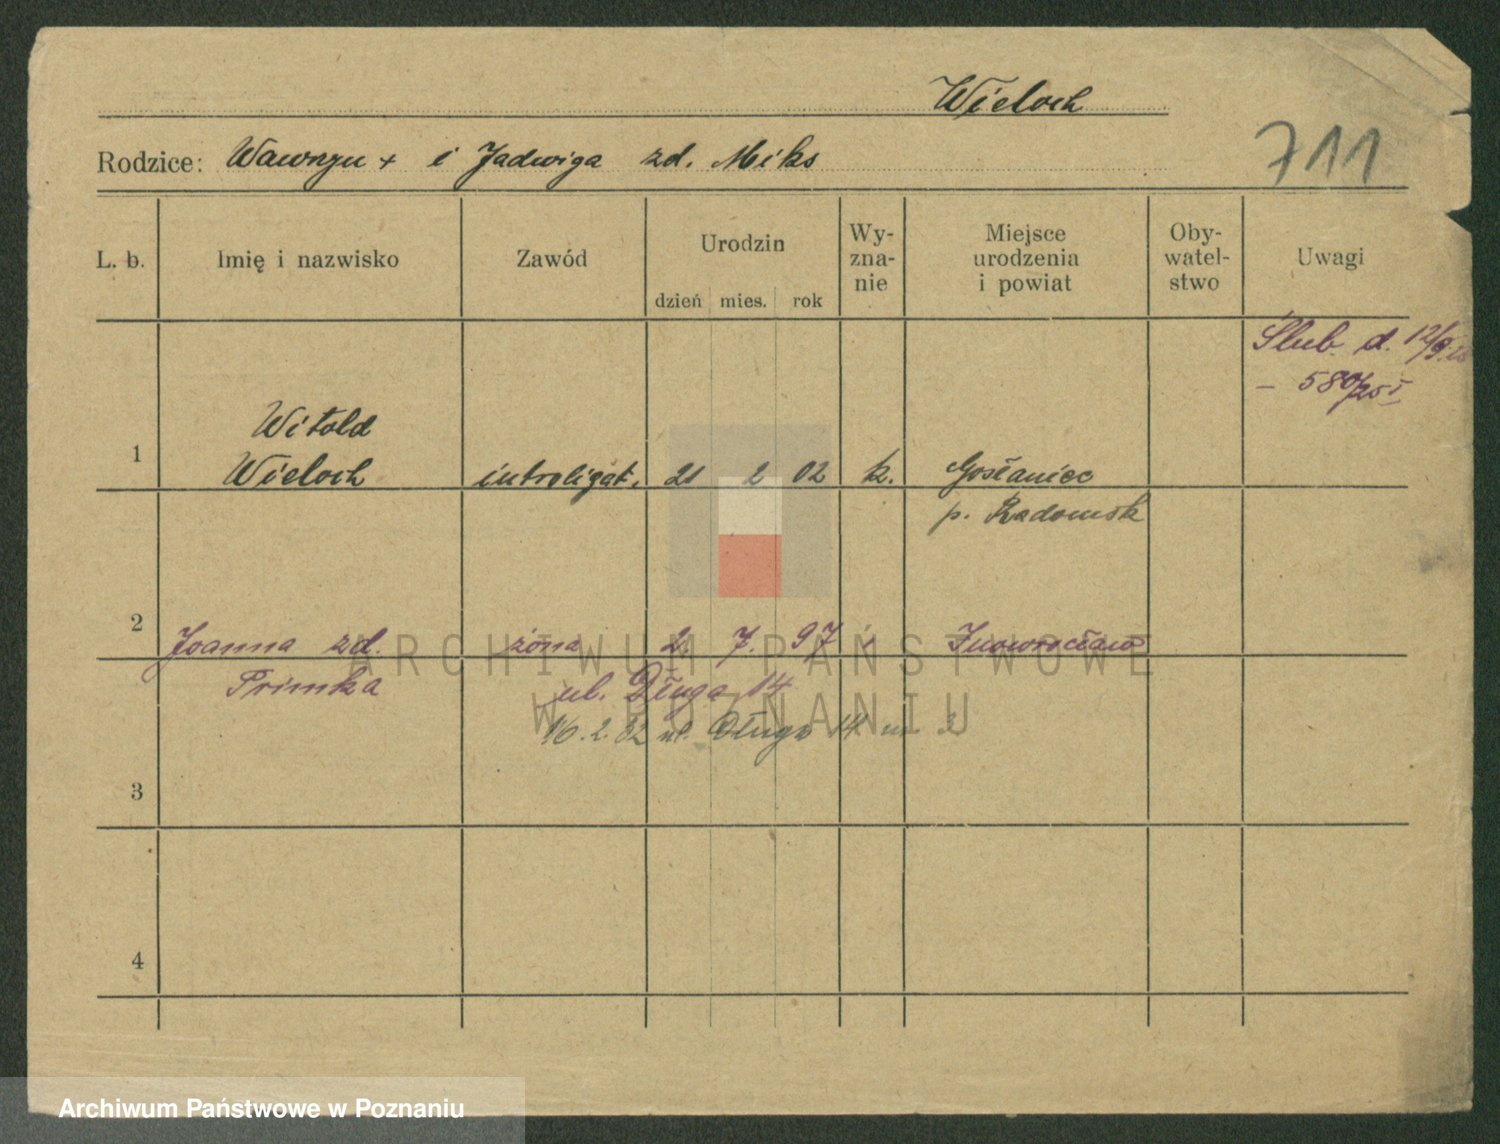 Wieloch
Rodzice: Wawrzyn + i Jadwiga zd. Miks
711
L. b. Imię i nazwisko Zawód Urodzin dzień mies. rok Wy-zna-nie Miejsce urodzenia i powiat Oby-watel-stwo Uwagi
Ślub d. 12/9.
– 580/25 I
Witold
1 Wieloch introligat. 21 2 02 k. Gosławiec
p. Radomsk
2 Joanna zd. żona 2. 7. 97 Inowrocław
Primka ul. Długa 14
16.2.32 ul. Długa 14 m
3
4
ARCHIWUM PAŃSTWOWE
W POZNANIU
Archiwum Państwowe w Poznaniu